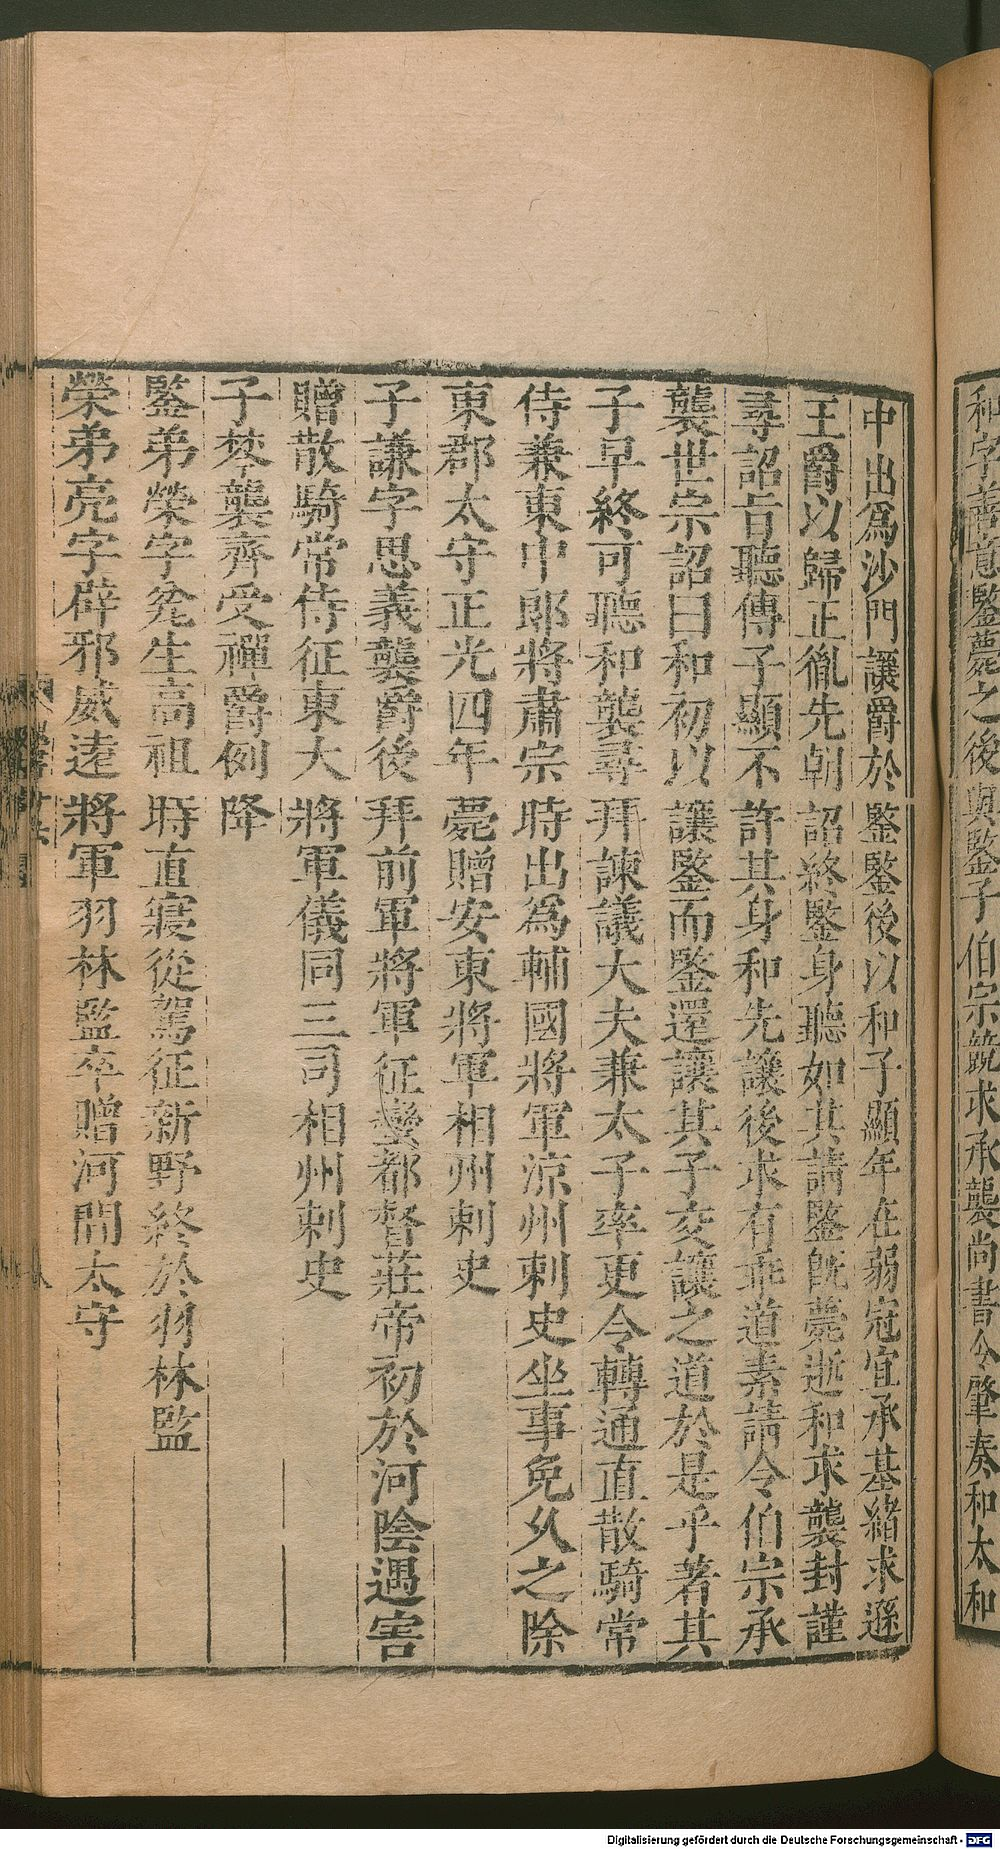 和字善意鑒薨之後與鑒子伯宗競求承襲尚書令肇奏和太和
中出爲沙門讓爵於鑒鑒後以和子顯年在弱冠宜承基緒求遜
王爵以歸正胤先朝詔終鑒身聽如其請鑒旣薨逝和求襲封謹
尋詔旨聽傳子顯不許其身和先讓後求有乖道素請令伯宗承
襲世宗詔曰和初以讓鑒而鑒還讓其子交讓之道於是乎著其
子早終可聽和襲尋拜諫議大夫兼太子率更令轉通直散騎常
侍兼東中郎將肅宗時出爲輔國將軍涼州刺史坐事免久之除
東郡太守正光四年薨贈安東將軍相州刺史
子謙字思義襲爵後拜前軍將軍征蠻都督莊帝初於河陰遇害
贈散騎常侍征東大將軍儀同三司相州刺史
子棽襲齊受禪爵例降
鑒弟榮字㑺生高祖時直寢從駕征新野終於羽林監
榮弟亮字辟邪威遠將軍羽林監卒贈河間太守
Digitalisierung gefördert durch die Deutsche Forschungsgemeinschaft - DFG